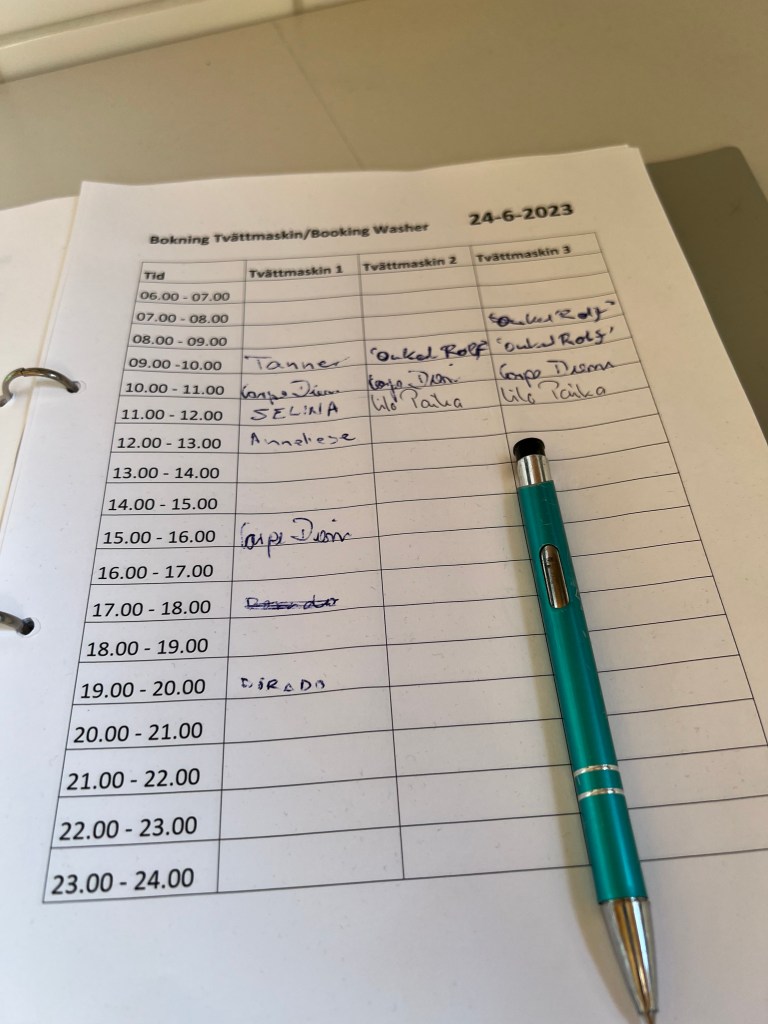 Bokning Tvättmaskin/Booking Washer 24-6-2023
Tid Tvättmaskin 1 Tvättmaskin 2 Tvättmaskin 3
06.00 - 07.00
07.00 - 08.00 "Onkel Rolf"
08.00 - 09.00 'Onkel Rolf'
09.00 -10.00 Tanner 'Onkel Rolf'
10.00 - 11.00 Carpe Diem Carpe Diem Carpe Diem
11.00 - 12.00 SELINA Lilo Paika Lilo Paika
12.00 - 13.00 Anneliese
13.00 - 14.00
14.00 - 15.00
15.00 - 16.00 Carpe Diem
16.00 - 17.00
17.00 - 18.00
18.00 - 19.00
19.00 - 20.00
20.00 - 21.00
21.00 - 22.00
22.00 - 23.00
23.00 - 24.00